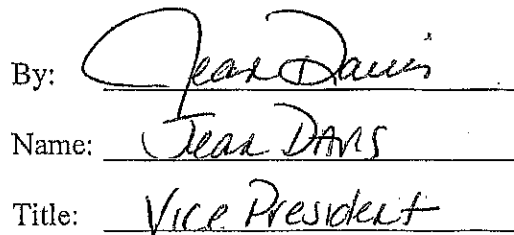 By: Jean Davis
Name: Jean DAVIS
Title: Vice President